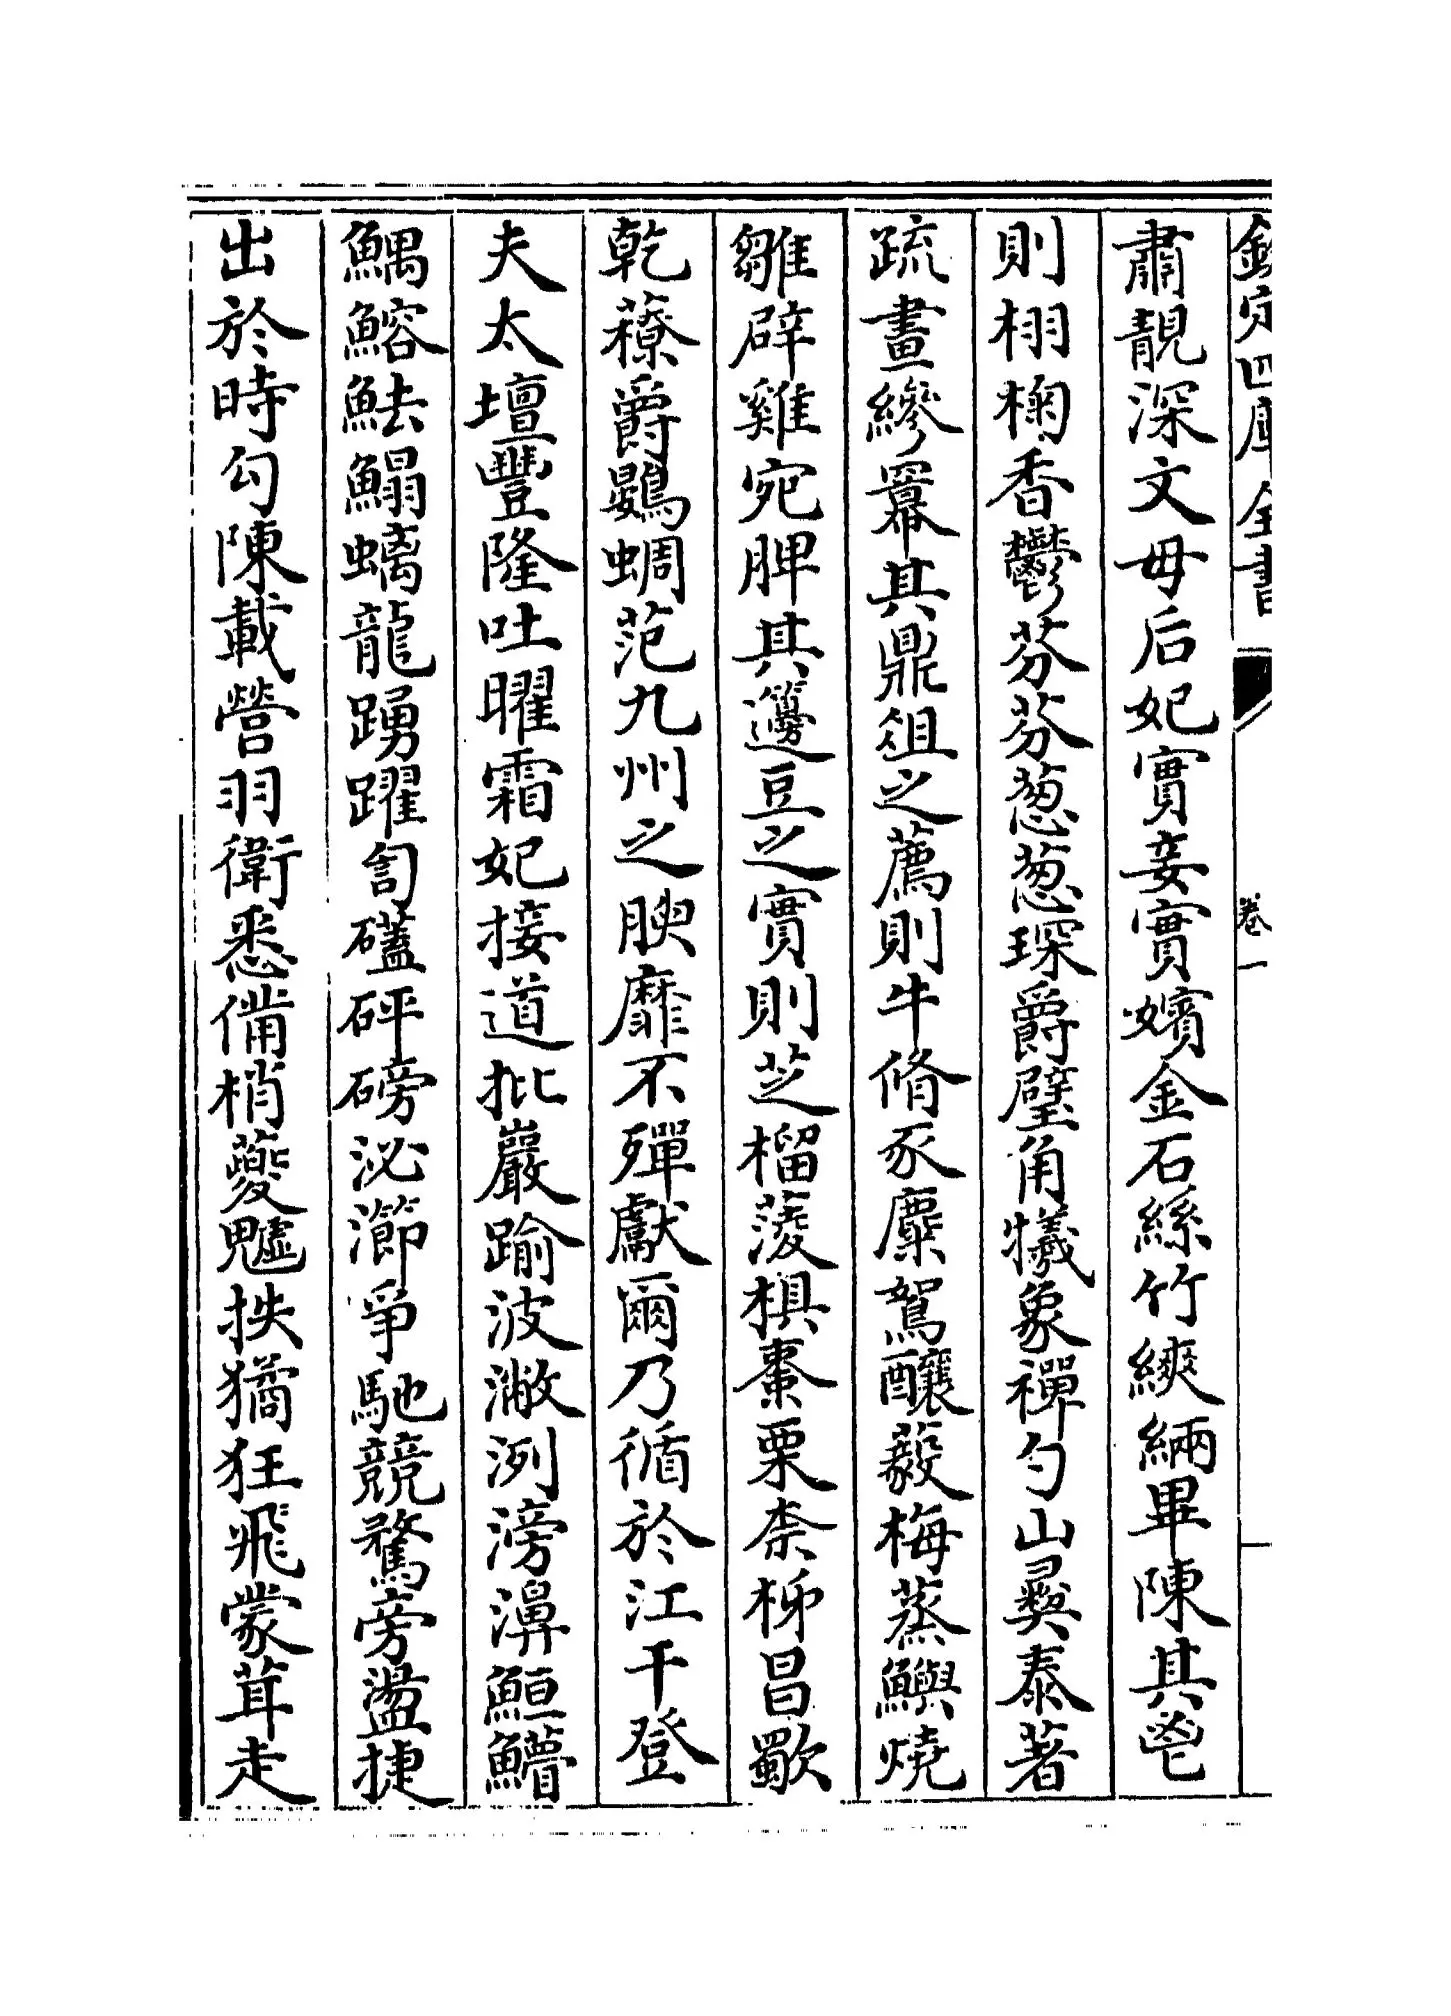 欽定四庫全書
卷一
肅靚深文母后妃實妾實嬪金石絲竹綊緉畢陳其鬯
則栩椈香鬱芬芬葱葱琛爵璧角犧象禪勺山彛泰著
疏畫縿羃其鼎俎之薦則牛脩豕麋鴽釀藙梅蒸鱮燒
雛辟雞宛脾其籩豆之實則芝榴蔆椇棗栗柰栘昌歜
乾䕩爵鷃蜩范九州之腴靡不殫獻爾乃循於江干登
夫太壇豐隆吐曜霜妃接道批巖踰波潎洌滂濞䱭鱛
鰅鰫魼鰨螭龍踴躍訇礚砰磅泌瀄爭馳競騖旁盪捷
出於時勾陳載營羽衛悉備梢夔魖抶獝狂飛蒙茸走